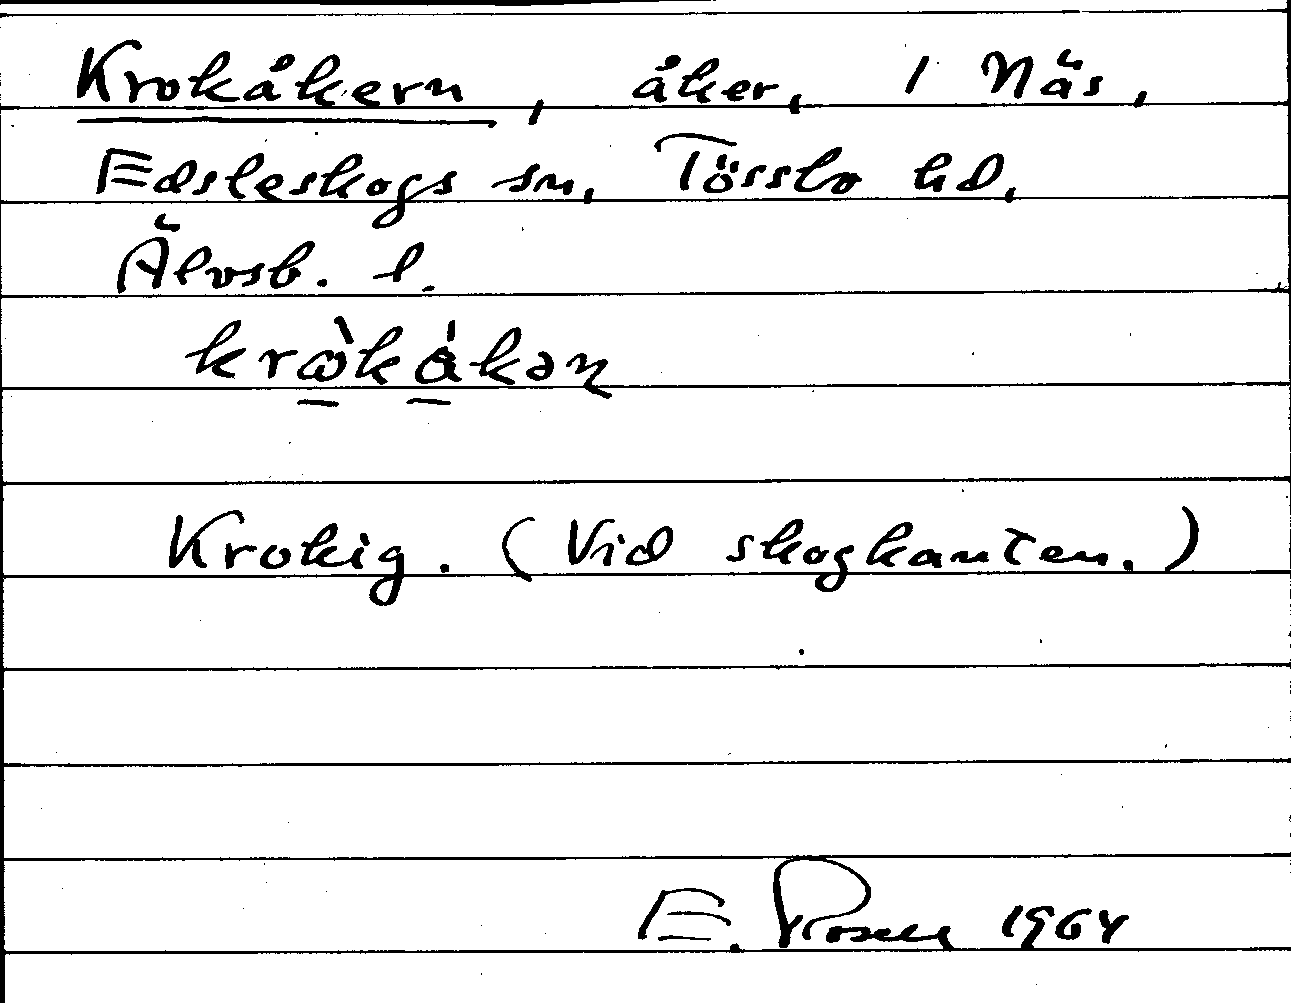 Krokåkern, åker, 1 Näs,
Edsleskogs sn, Tössbo hd,
Älvsb. l.
krὼkåkəɳ
Krokig. (Vid skogkanten.)
E. Rosell 1964